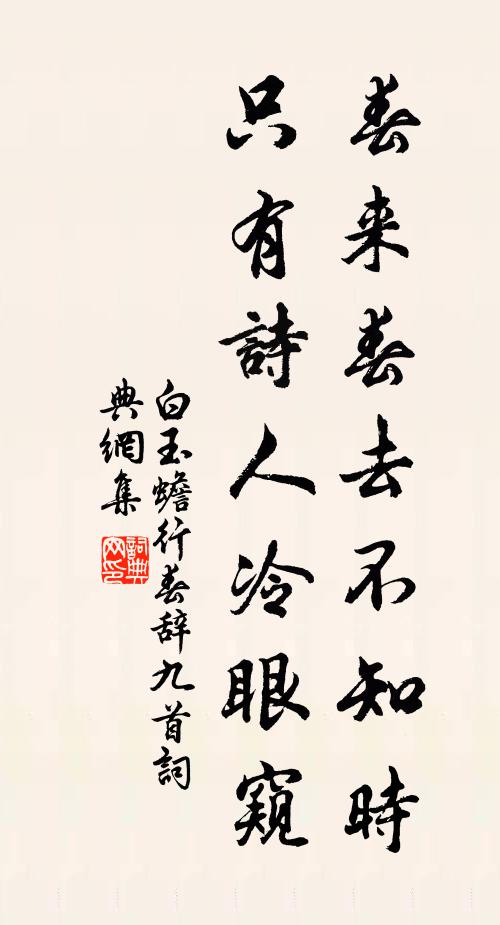 春来春去不知時
只有詩人冷眼窺
白玉蟾行春辞九首詞
典網集
詞典網印